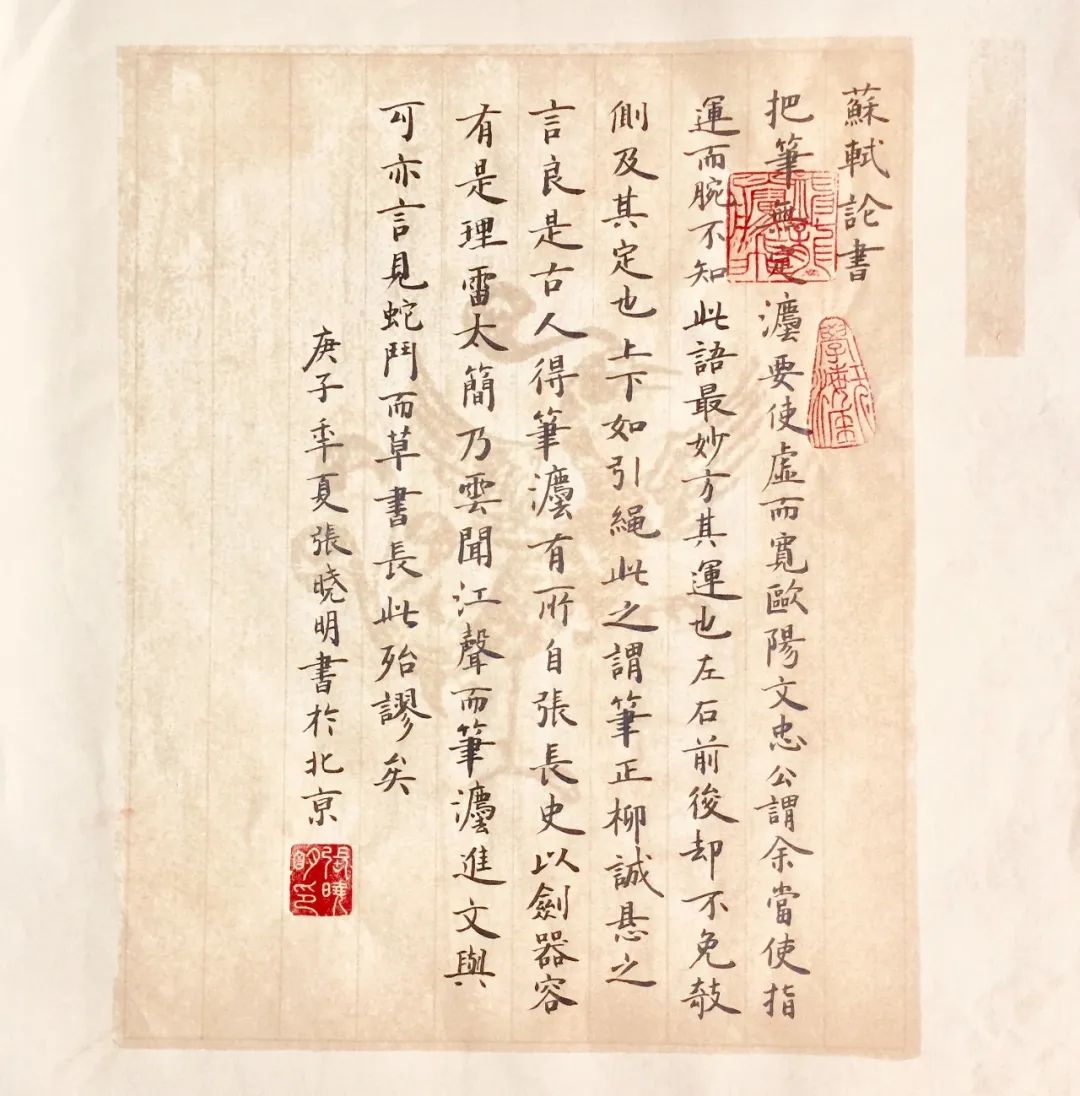 蘇軾論書
把筆無定灋要使虛而寬歐陽文忠公謂余當使指
運而腕不知此語最妙方其運也左右前後却不免攲
側及其定也上下如引繩此之謂筆正柳誠懸之
言良是古人得筆灋有所自張長史以劍器容
有是理雷太簡乃雲聞江聲而筆灋進文與
可亦言見蛇鬥而草書長此殆謬矣
庚子年夏張晓明書於北京
張曉明印